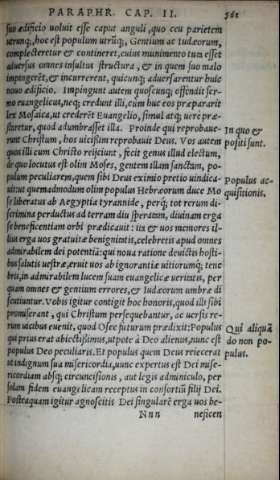 PARAPHR. CAP. II. 561
suo ædificio uoluit esse caput anguli, quo ceu parietem
utrunq;, hoc est populum utrūq;, Gentium ac Iudæorum,
complecteretur et contineret, cuius munimento tuta esset
aduersus omnes insultus structura, et in quem suo malo
impingerēt, et incurrerent, quicunq; aduersarentur huic
nouo ædificio. Impingunt autem quoscunq; offendit ser-
mo euangelicus, neq; credunt illi, cum huc eos præpararit
lex Mosaica, ut crederēt Euangelio, simul atq; uere præ-
staretur, quod adumbrasset illa. Proinde qui reprobaue-
runt Christum, hos uicissim reprobauit Deus. Vos autem
quos illi cum Christo reijciunt, fecit genus illud electum,
de quo locutus est olim Moses, gentem illam sanctam, po-
pulum peculiarem, quem sibi Deus eximio pretio uindica-
uit: ut quemadmodum olim populus Hebræorum duce Mo
se liberatus ab Aegyptia tyrannide, perq; tot rerum di-
scrimina perductus ad terram diu speratam, diuinam erga
se beneficentiam orbi prædicauit: ita et uos memores il-
lius erga uos gratuitæ benignitatis, celebretis apud omnes
admirabilem dei potentiā: qui noua ratione deuictis hosti-
bus salutis uestræ, eruit uos ab ignorantiæ uitiorumq; tene
bris, in admirabilem lucem suam euangelicæ ueritatis, per
quam omnes et gentium errores, et Iudæorum umbræ di
scutiuntur. Vobis igitur contigit hoc honoris, quod illi sibi
promiserant, qui Christum persequebantur, ac uersis re-
rum uicibus euenit, quod Osee futurum prædixit: Populus
qui prius erat abiectissimus, utpote à Deo alienus, nunc est
populus Deo peculiaris. Et populus quem Deus reiecerat
ut indignum sua misericordia, nunc expertus est Dei mise-
ricordiam absq; circuncisionis, aut legis adminiculo, per
solam fidem euangelicam receptus in consortiū filij Dei.
Posteaquam igitur agnoscitis Dei singularē erga uos be-
Nnn neficen
In quo et
positi sunt.
Populus ac-
quisitionis.
Qui aliquā
do non po-
pulus.